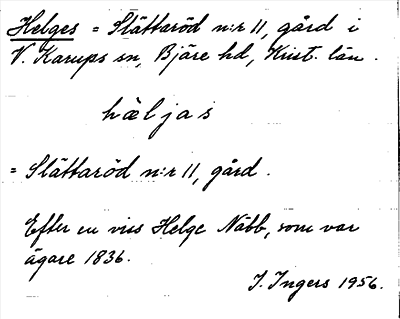 Helges = Slättaröd n:r 11, gård i
V. Karups sn, Bjäre hd, Krist. län.
hàljas
= Slättaröd n:r 11, gård.
Efter en viss Helge Nabb, som var
ägare 1836.
I. Ingers 1956.